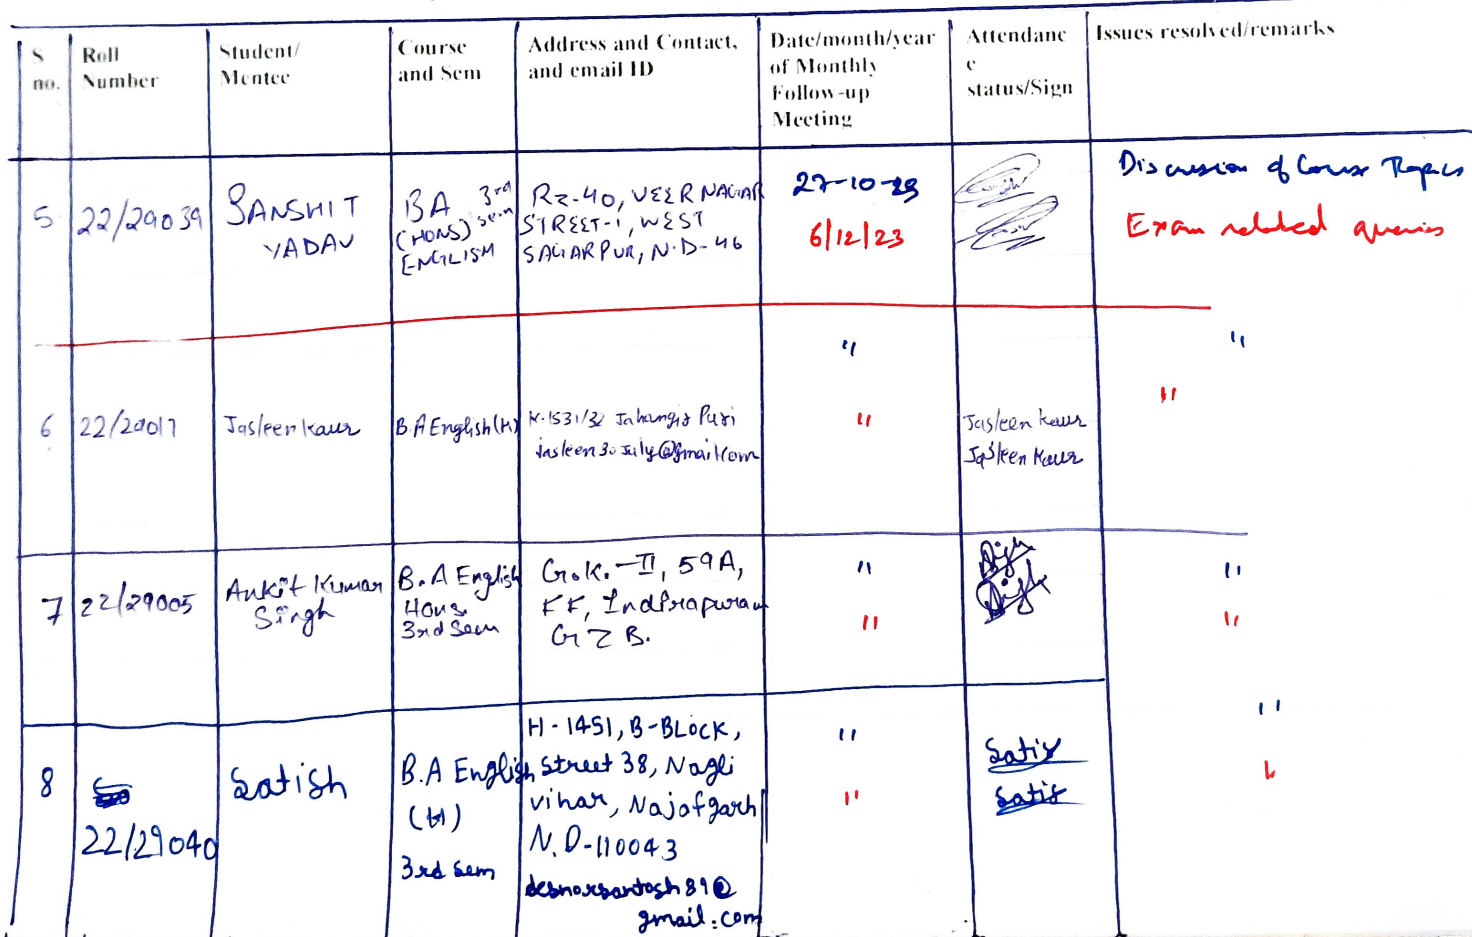 S no.
Roll Number
Student/ Mentee
Course and Sem
Address and Contact, and email ID
Date/month/year of Monthly Follow-up Meeting
Attendanc e status/Sign
Issues resolved/remarks
5
22/29039
SANSHIT
YADAV
BA 3rd
(HONS) sem
ENGLISH
RZ-40, VEER NAGAR
STREET-1, WEST
SAGARPUR, N.D-46
27-10-23
6/12/23
Discussion of Course Topics
Exam related queries
6
22/29017
Jasleen Kaur
B.A English (H)
K-1531/32 Jahangir Puri
jasleen30july@gmail.com
"
"
Jasleen Kaur
Jasleen Kaur
"
"
7
22/29005
Ankit Kumar
Singh
B.A English
Hons
3rd Sem
G.K.-II, 59A,
FF, Indirapuram
GZB.
"
"
"
"
8
22/29040
Satish
B.A English
(H)
3rd Sem
H-1451, B-BLOCK,
Street 38, Nagli
vihar, Najafgarh
N.D-110043
gmail.com
"
"
Satis
Satis
"
"